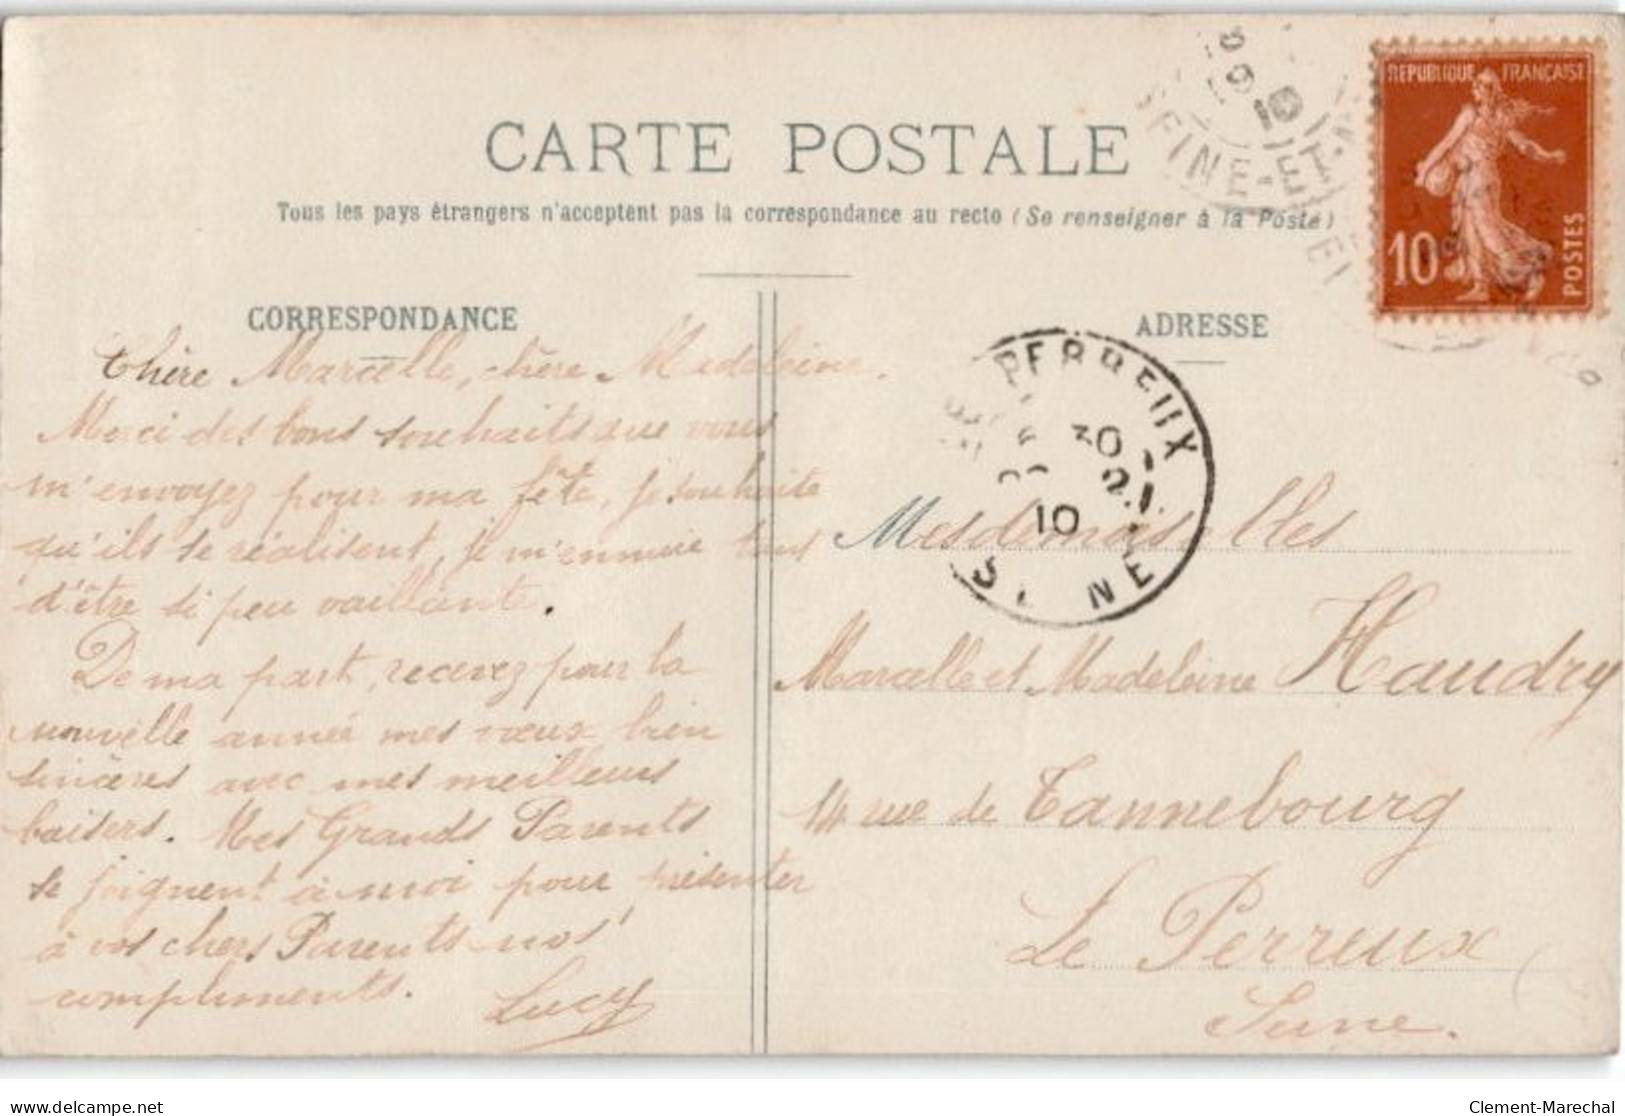 CARTE POSTALE
Tous les pays étrangers n'acceptent pas la correspondance au recto (Se renseigner à la Poste)
REPUBLIQUE FRANÇAISE
10
POSTES
SEINE-ET-M
10
CORRESPONDANCE
Chère Marcelle, chère Madeleine.
Merci des bons souhaits que vous
m'envoyez pour ma fête, je souhaite
qu'ils se réalisent, je m'ennuie tant
d'être si peu vaillante.
De ma part, recevez pour la
nouvelle année mes vœux bien
sincères avec mes meilleurs
baisers. Mes Grands Parents
se joignent à moi pour présenter
à vos chers Parents nos
compliments. Lucy
ADRESSE
PERREUX
30
10
SEINE
Mesdemoiselles
Marcelle et Madeleine Haudry
14 rue de Cannebourg
Le Perreux
Seine.
delcampe.net
Clement-Marechal